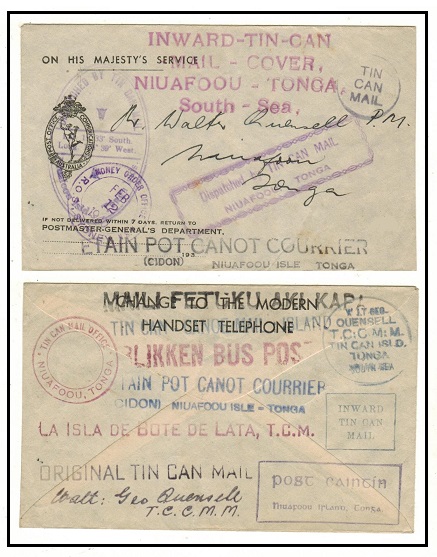 INWARD-TIN-CAN
MAIL - COVER,
NIUAFOOU - TONGA,
South - Sea.
ON HIS MAJESTY'S SERVICE
TIN
CAN
MAIL
Walter Quensell P.M.
Tonga
Dispatched by TIN CAN MAIL
NIUAFOOU, TONGA
South.
West.
MONEY ORDER
FEB
IF NOT DELIVERED WITHIN 7 DAYS, RETURN TO
POSTMASTER-GENERAL'S DEPARTMENT.
ETAIN POT CANOT COURRIER
193
(CIDON) NIUAFOOU ISLE TONGA
CHANGE TO THE MODERN
HANDSET TELEPHONE
TIN ISLAND
BLIKKEN BUS POST
ETAIN POT CANOT COURRIER
(CIDON) NIUAFOOU ISLE - TONGA
TIN CAN MAIL OFFICE
NIUAFOOU, TONGA
QUENSELL
T.C.C.M.M.
TIN CAN ISLD.
TONGA
SOUTH SEA
LA ISLA DE BOTE DE LATA, T.C.M.
INWARD
TIN CAN
MAIL
ORIGINAL TIN CAN MAIL
Walt. Geo Quensell
T.C.C.M.M.
post caintin
Niuafoou Island, Tonga.